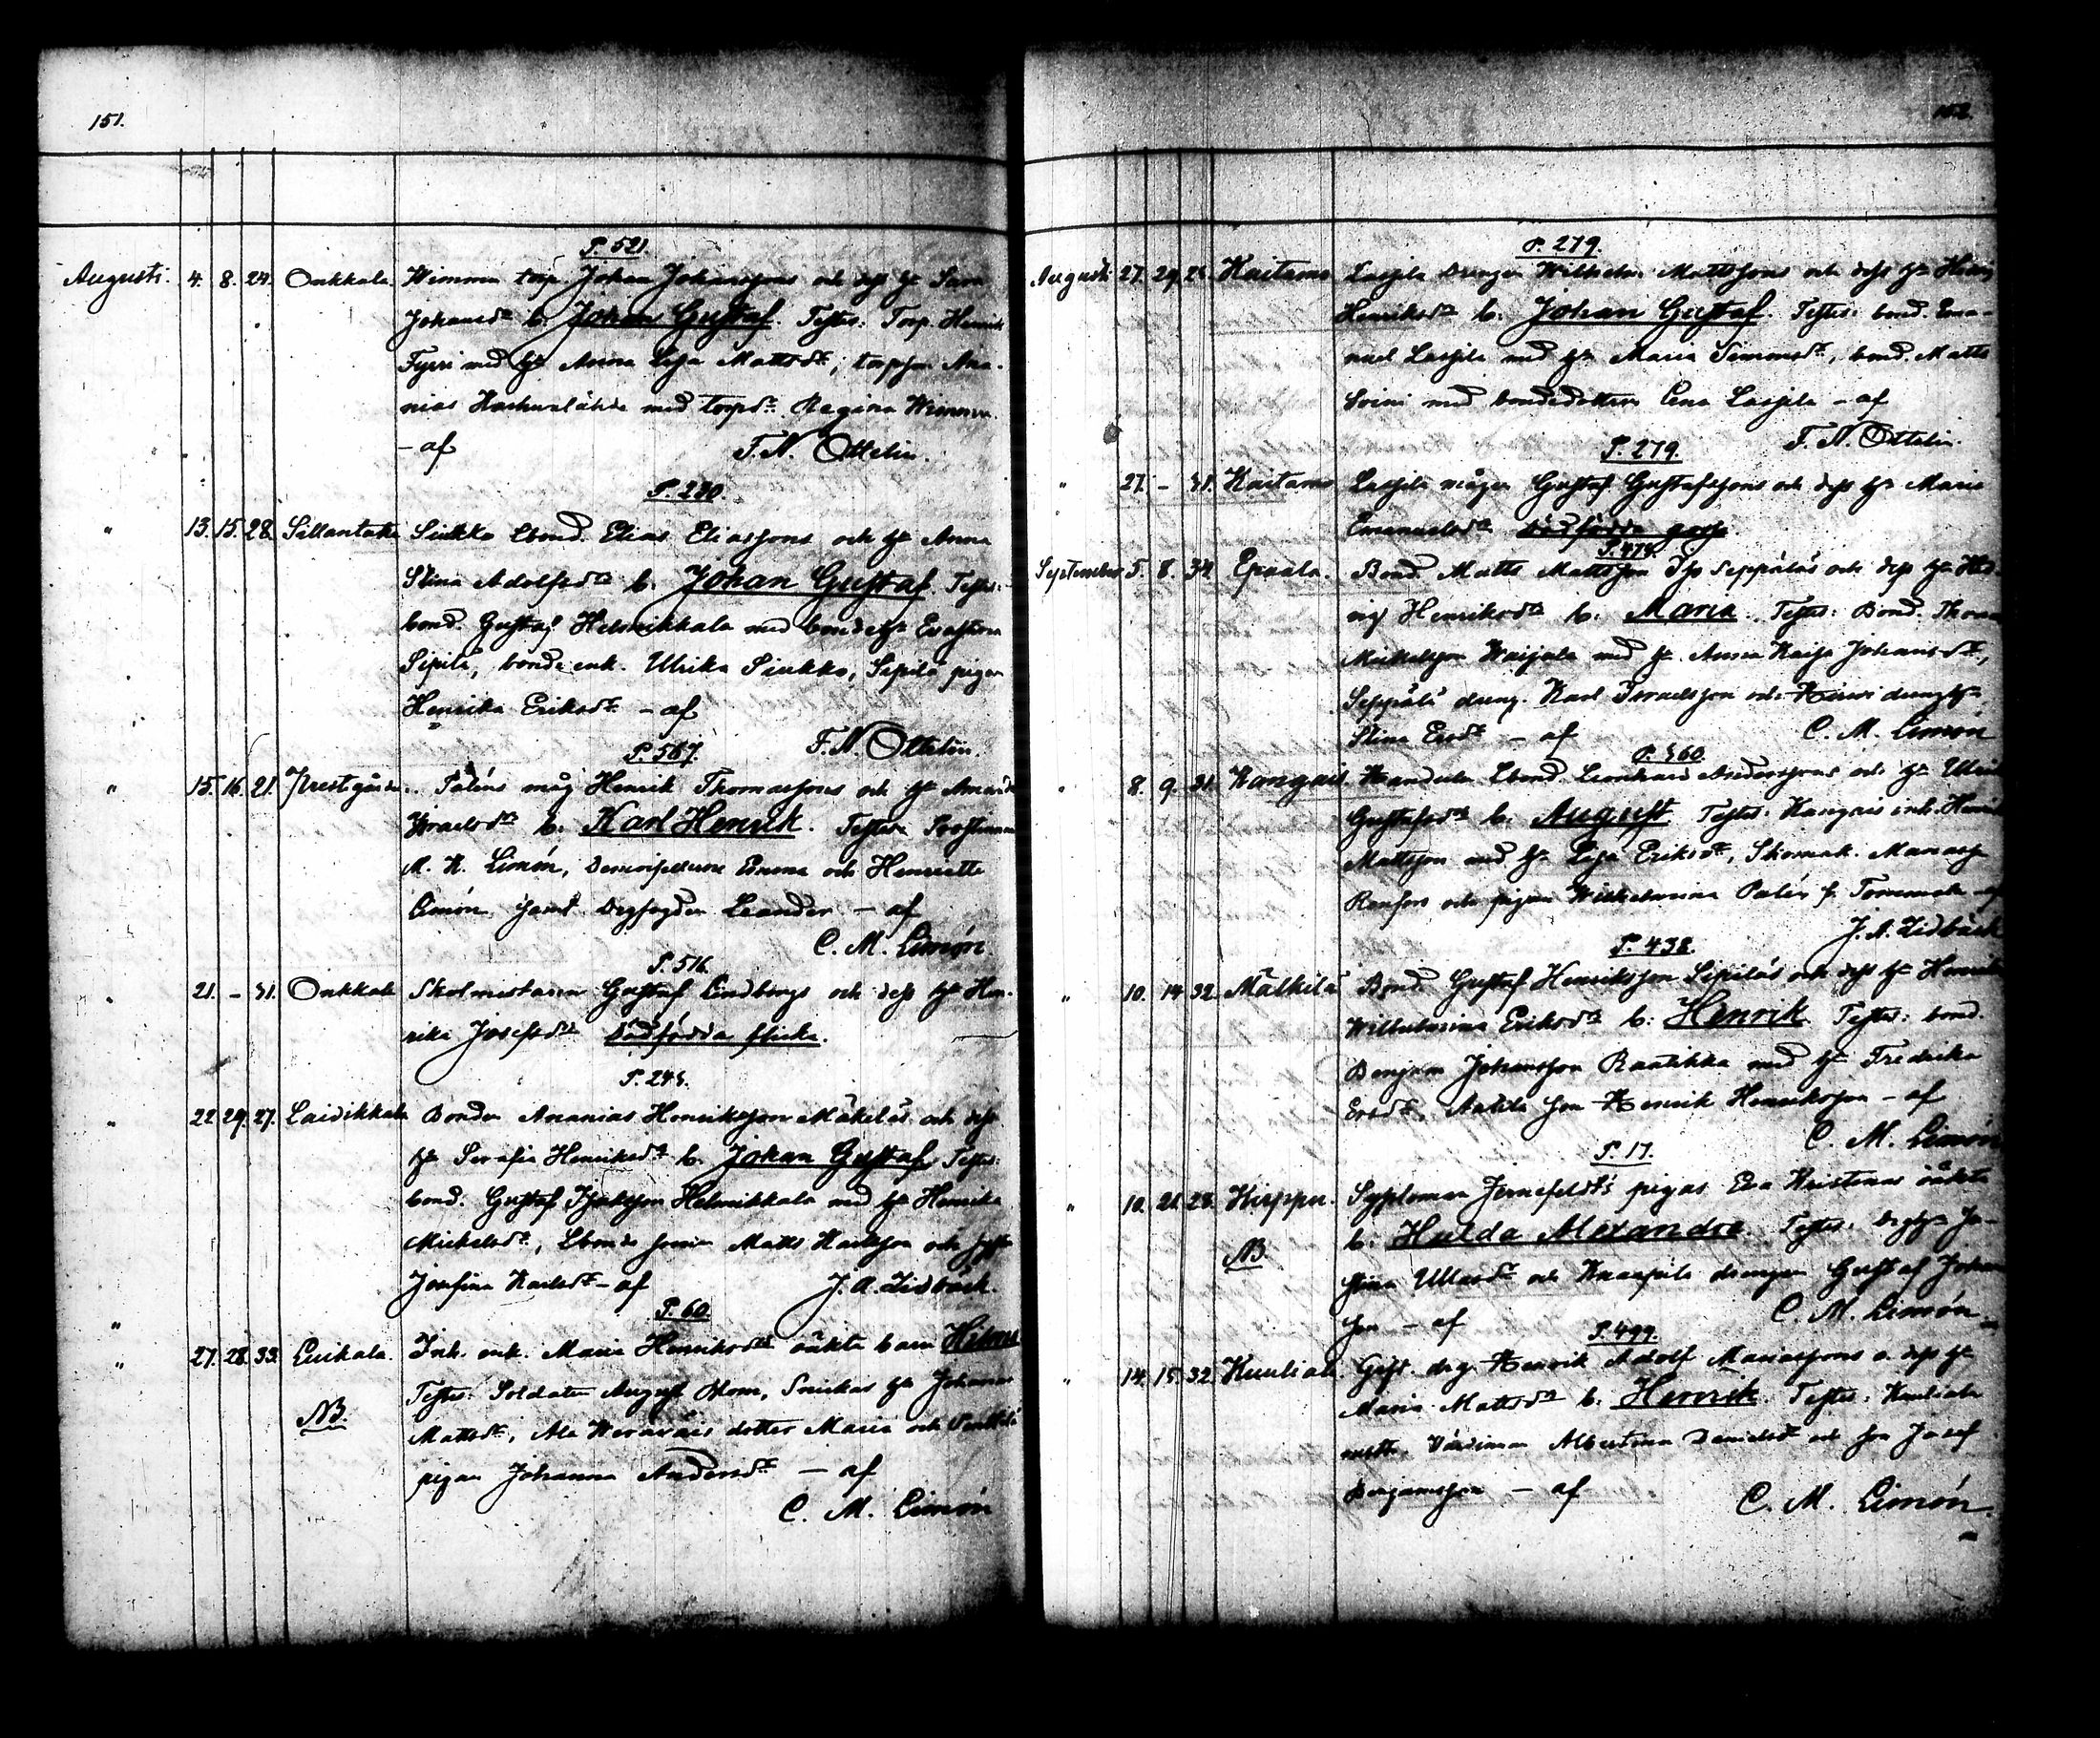 151.
P. 521.
Augusti. 4. 8. 24. Onkkala. Wimma torp. Johan Johanssons och dess h. Sara
Johansdr b. Johan Gustaf. Testes: Torp. Henrik
Tyrri med h. Anna Lisa Mattsdr; torpson Ana-
nias med torpdr. Regina Wimma.
- af F. N. Ottelin.
P. 230.
" 13. 15. 28. Sillantaka Siukko Lbond. Elias Eliassons och h. Anna
Stina Adolfsdr b. Johan Gustaf. Testes:
bond. Gustaf Helmikkala med bondeh. Evastina
Sipilä, bonde enk. Ulrika Siukko, Sipilä pigan
Henrika Eriksdr. - af
P. 587. F. N. Ottelin.
" 15. 16. 21. Prestgården. Paléns måg Henrik Thomassons och h. Amanda
Israelsdr b. Karl Henrik. Testes: Prostinnan
M. K. Limón, Demoisellerne Emma och Henriette
Limón samt Leander - af
C. M. Limón.
P. 516.
" 21. - 31. Onkkala Skolmästaren Gustaf Lindbergs och dess h. Hen-
rika Josefsdr dödfödda flicka.
P. 245.
" 22. 29. 27. Laidikkala Bonden Ananias Henriksson Mäkeläs och dess
h. Serafia Henriksdr b. Johan Gustaf. Testes:
bond. Gustaf Isaksson Helmikkala med h. Henrika
Mickelsdr, Lbonde sonen Matts Karlsson och syster
Josefina Karlsdr - af J. A. Lidbäck.
" P. 60.
" 27. 28. 33. Luikala. Inh. enk. Maria Henriksdrs oäkta barn Hilma
Testes: Soldaten August Blom, Snickar h. Johanna
NB. Mattsdr, Ala dotter Maria och
pigan Johanna Andersdr - af
C. M. Limón
152.
P. 279.
Augusti 27. 29. 25. Kaitamo Lassila Drengen Wilhelm Mattssons och dess h. Hedvig
Henriksdr b. Johan Gustaf. Testes: bond. Ema-
nuel Lassila med h. Maria Simonsdr, bond. Matts
Soini med bondedottern Lena Lassila - af
P. 279. F. N. Ottelin.
" 27. - 31. Kaitamo Lassila mågen Gustaf Gustafssons och dess h. Maria
Emanuelsdr dödfödda gosse.
P. 478.
September 5. 8. 34. Epaala. Bond. Matts Mattsson Iso Seppäläs och dess h. Hed-
vig Henriksdr b. Maria. Testes: Bond. Thomas
Mickelsson Waijala med h. Anna Kaisa Johansdr,
Seppälä dreng. Karl Israelsson och drengh.
Stina Ersdr - af C. M. Limón
P. 360.
" 8. 9. 31. Kangais. Lbond. Leonhard Anderssons och h. Ulrika
Gustafsdr b. August. Testes: Kangais inh. Henrik
Mattsson med h. Lisa Eriksdr, Skomak. Manasse
Renfors och pigan Wilhelmina Palén f. Tommola - af
P. 438. J. A. Lidbäck
" 10. 14. 32. Mälkilä Bond. Gustaf Henriksson Sipiläs och dess h. Henrika
Wilhelmina Eriksdr b: Henrik. Testes: bond.
Benjam Johansson Rautikka med h. Fredrika
Ersdr, Anttila son Henrik Henriksson - af
P. 17. C. M. Limón
" 10. 21. 28. Kirppu. Jernefeldt's pigas Eva Kristinas oäkta
NB b. Hulda Alexandra. Testes: Ju-
stina Ullasdr och Knaapila drengen Gustaf Johans-
son - af C. M. Limón
P. 499.
" 14. 15. 32. Kuuliala. Gift. drg. Henrik Adolf Mariassons o. dess h.
Maria Mattsdr b. Henrik. Testes: Kuuliala
Albertina Danielsdr och son Josef
Benjamsson - af C. M. Limón.